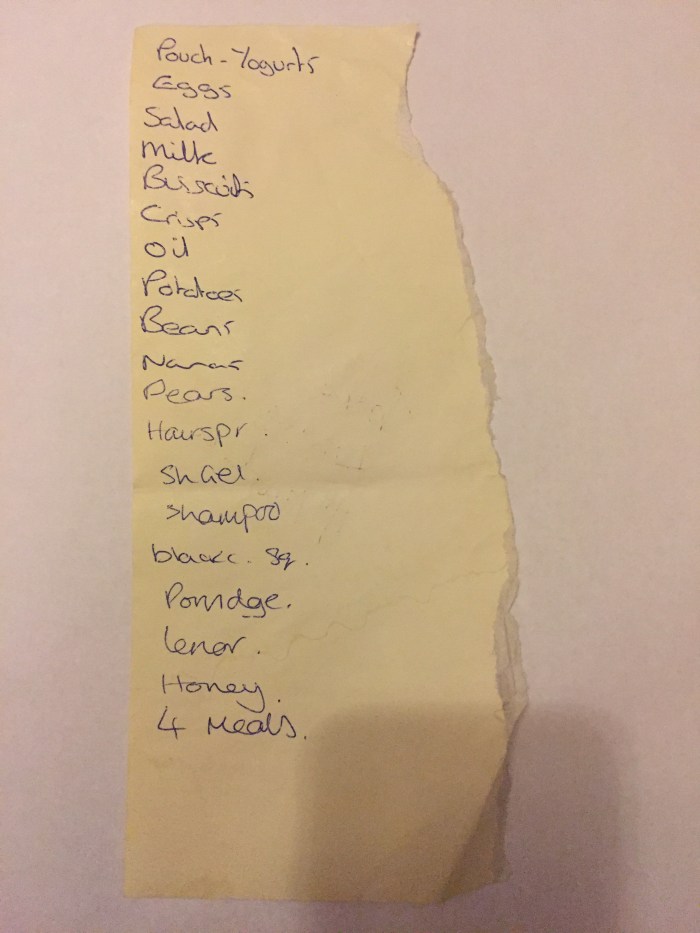 Pouch - Yogurts
Eggs
Salad
Milk
Biscuits
Crisps
Oil
Potatoes
Beans
Nanas
Pears.
Hairspr.
Sh Gel.
Shampoo
blackc. Sq.
Porridge.
Lenor.
Honey.
4 Meals.